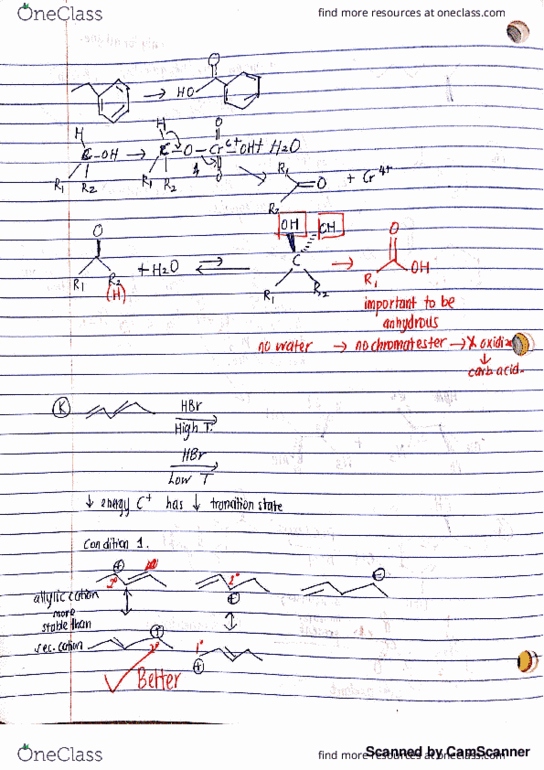 OneClass
find more resources at oneclass.com
O
HO
H
H
O
C-OH → C-O-Cr6+-OH + H2O
R1 R2
R1 R2
O
R1
R2
=O + Cr4+
O
OH
OH
O
+ H2O
C
OH
R1 R2
(H)
R1 R2
R1
important to be
anhydrous
no water → no chromatester → X oxidiz
↓
carb acid.
K
HBr
High T.
HBr
Low T
↓ energy C+ has ↓ tranition state
Condition 1.
allylic cation
more
stable than
sec. cation
2°
2°
2°
1°
Better
OneClass
find more resources at oneclass.com
Scanned by CamScanner